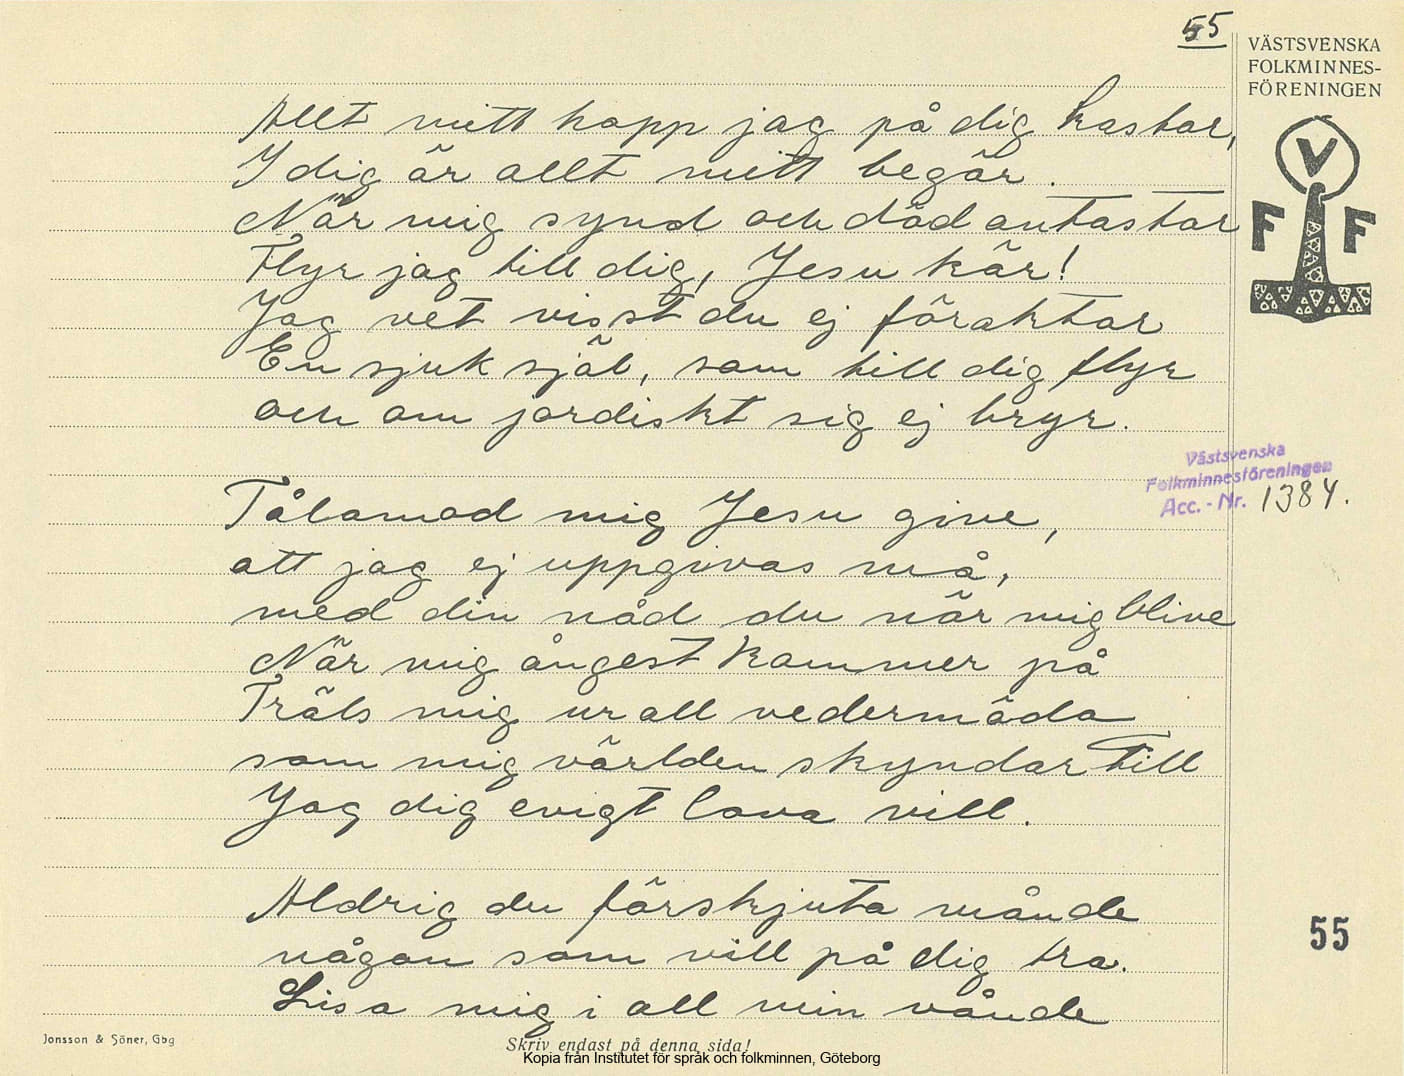 55
VÄSTSVENSKA
FOLKMINNES-
FÖRENINGEN
V
F F
Allt mitt hopp jag på dig kastar,
I dig är allt mitt begär.
När mig synd och död antastar
Flyr jag till dig, Jesu kär!
Jag vet visst du ej föraktar
En sjuk själ, som till dig flyr
och om jordiskt sig ej bryr.
Västsvenska
Folkminnesföreningen
Acc.-Nr. 1384.
Tålamod mig Jesu give,
att jag ej uppgivas må,
med din nåd du när mig blive
När mig ångest kommer på
Fräls mig ur all vedermöda
som mig världen skyndar till
Jag dig evigt lova vill.
Aldrig du förskjuta månde
någon som vill på dig tro.
55
Lisa mig i all min vånde
Jonsson & Söner, Gbg
Skriv endast på denna sida!
Kopia från Institutet för språk och folkminnen, Göteborg